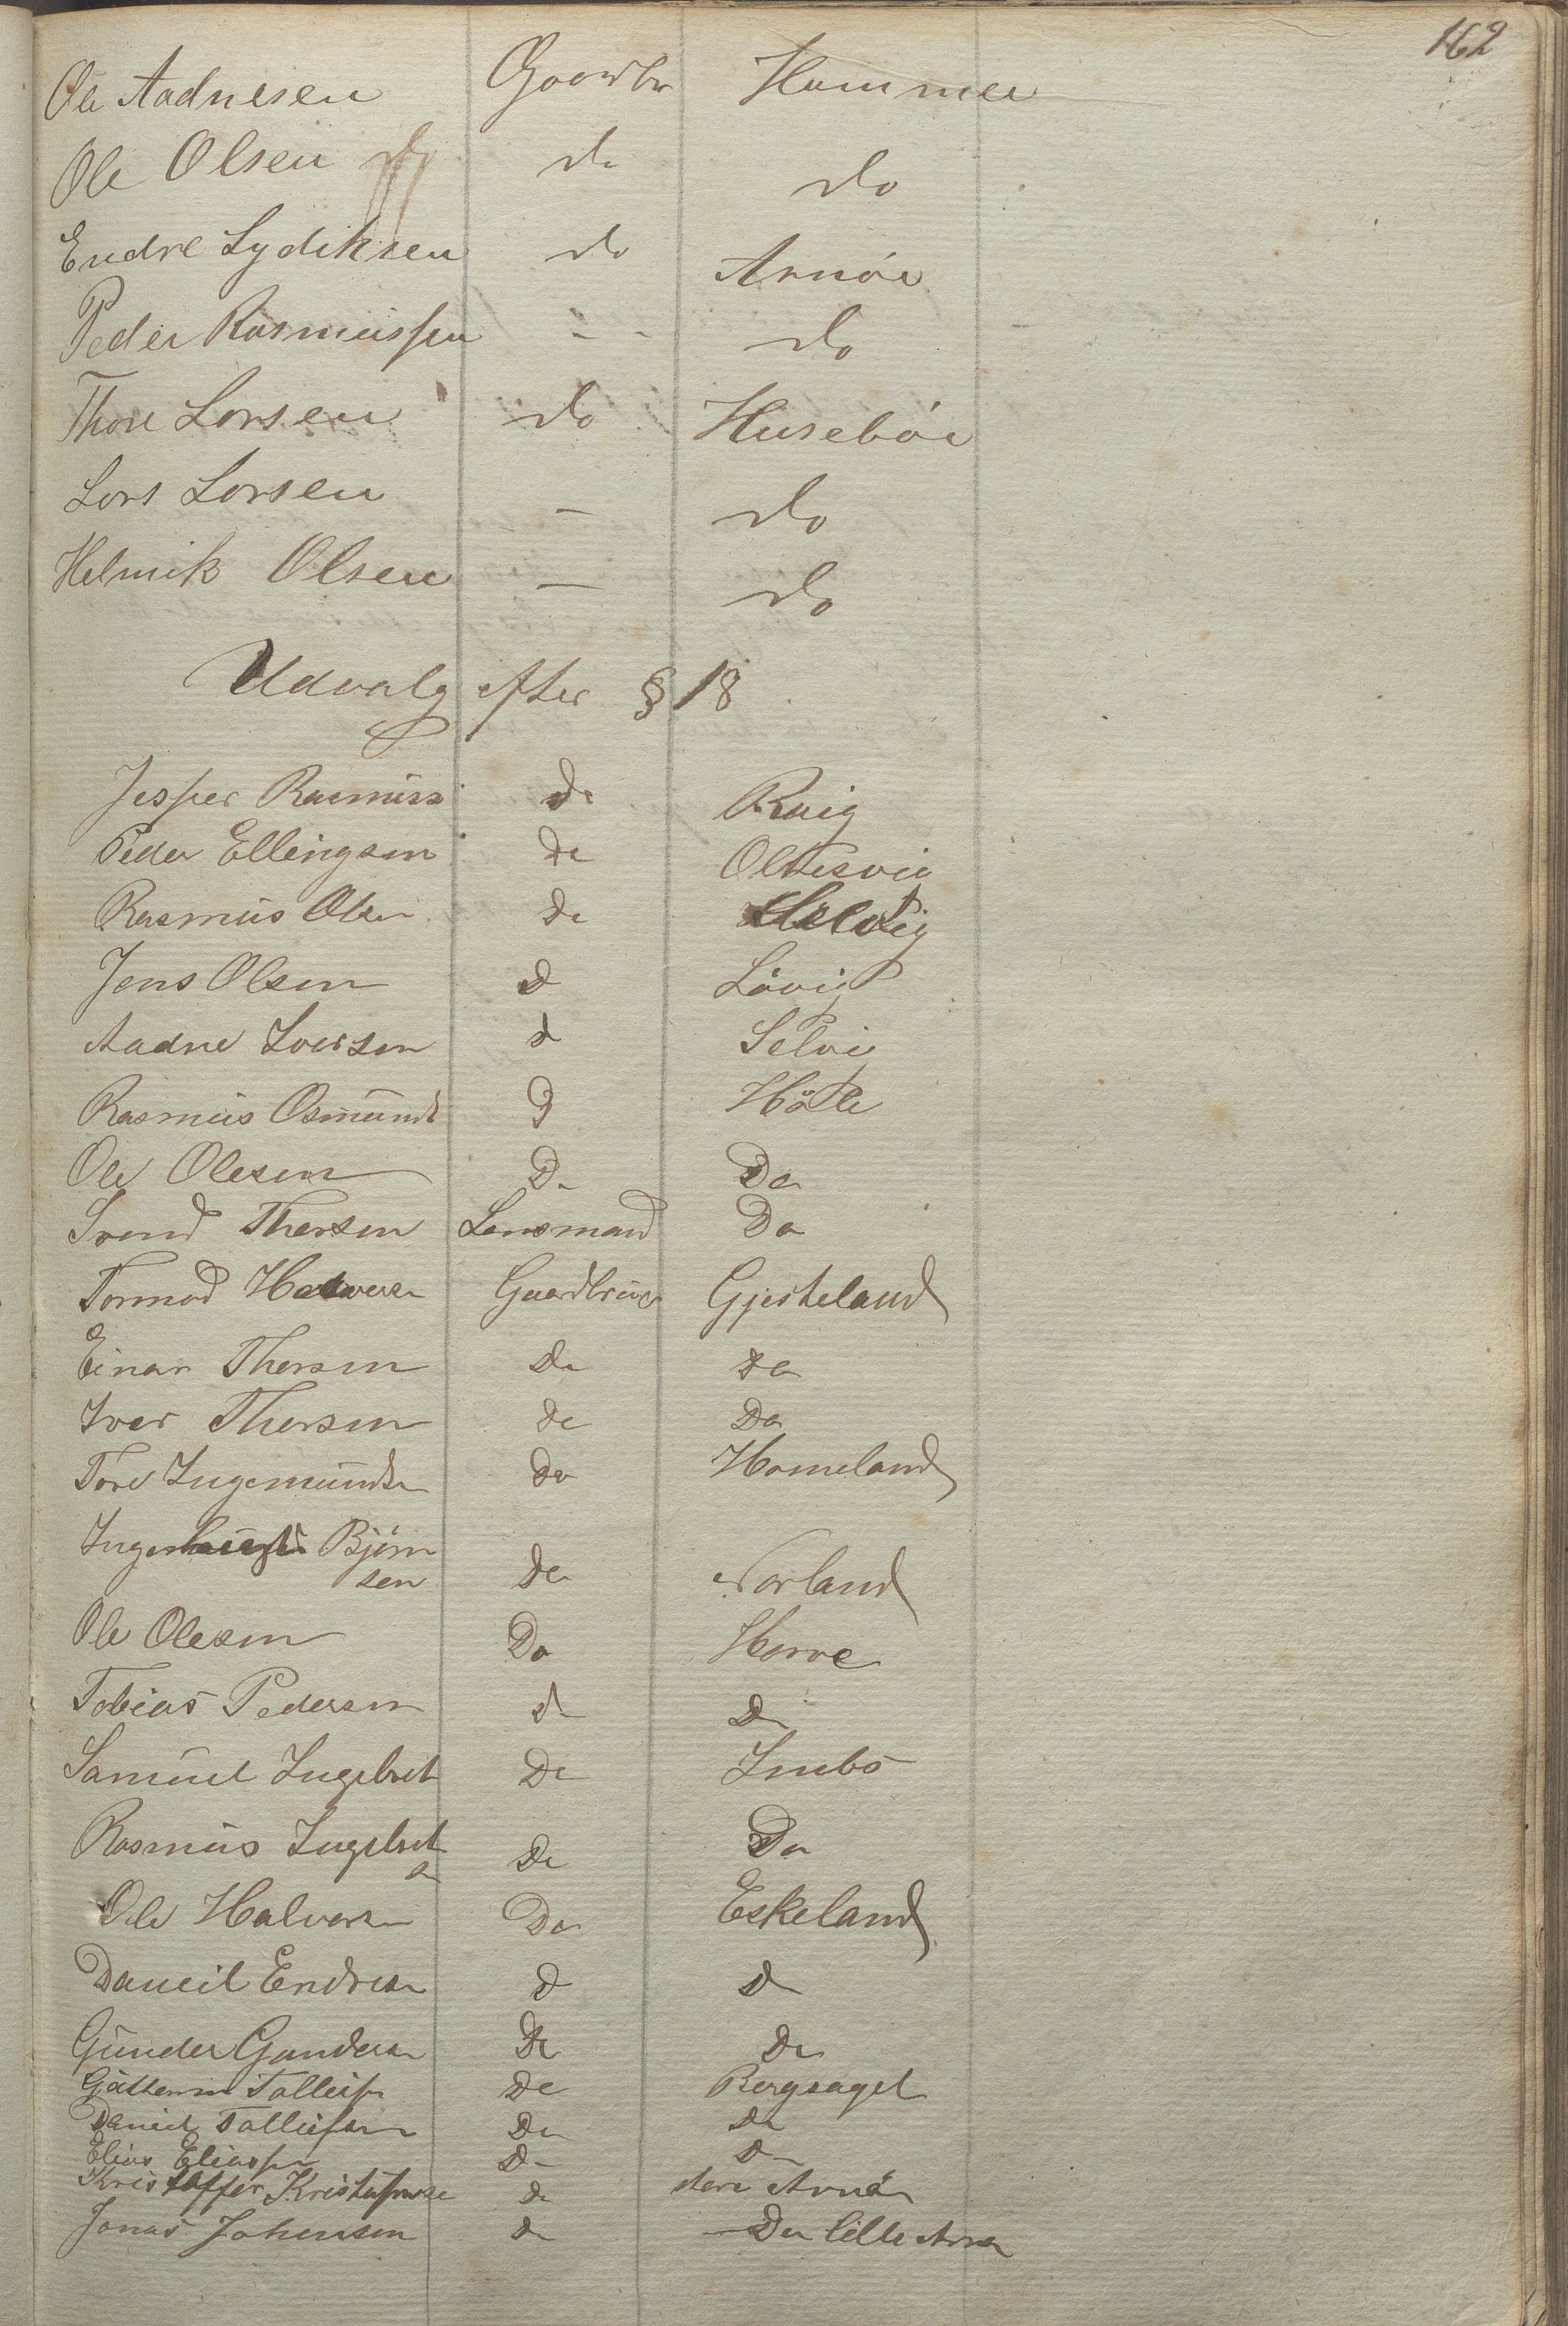 162
Ole Aadnesen Gaardbr Hummer
Ole Olsen do do do
Endre Lydiksen do Arnöe
Peder Rasmussen - - do
Thore Larsen do Huseböe
Lars Larsen - do
Helmik Olsen - do
Udvalg efter § 18
Jesper Rasmuss do
Peder Ellingsen do Oltesvig
Rasmus Olsen do
Jens Olsen d Lövig
Aadne Iversen d Selvig
Rasmus Osmunds D Hötte
Ole Olesen Do Do
Svend Thorsen Lensmand Do
Tormod Halvorsen Gaardbruger Gjesteland
Einar Thorsen Do Do
Iver Thorsen do Do
Tore Ingemundsen do Homeland
Björn
sen do Norland
Ole Olesen Do Horve
Tobias Pedersen d D
Samuel Ingebret Do
Rasmus Ingebret
sn Do Do
Ole Halvorsen Do Eskeland
Daneil Endresen d D
Gunder Gundersen Do Do
Tolleifsen do Bergsagel
Daniel Tolleifsen Do Do
Elias Eliassen D- D-
Kristoffer Kristofersen do store Arnö
Jonas Johensen d Do lille Arnö